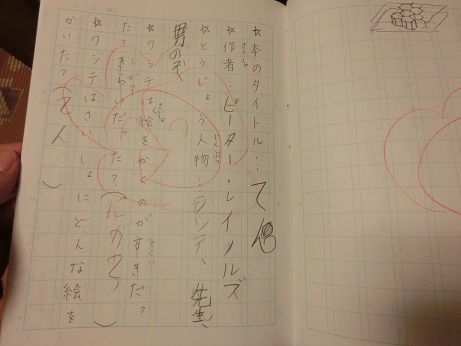 ☆本のタイトル：てん
☆作者 ピーター・レイノルズ
さくしゃ
☆とうじょう人物：ワシテ、先生、
じんぶつ
男の子
☆ワシテは絵をかくのがすきだっ
た？きらいだった？（にがて）
☆ワシテはさいしょにどんな絵を
かいた？（てん）